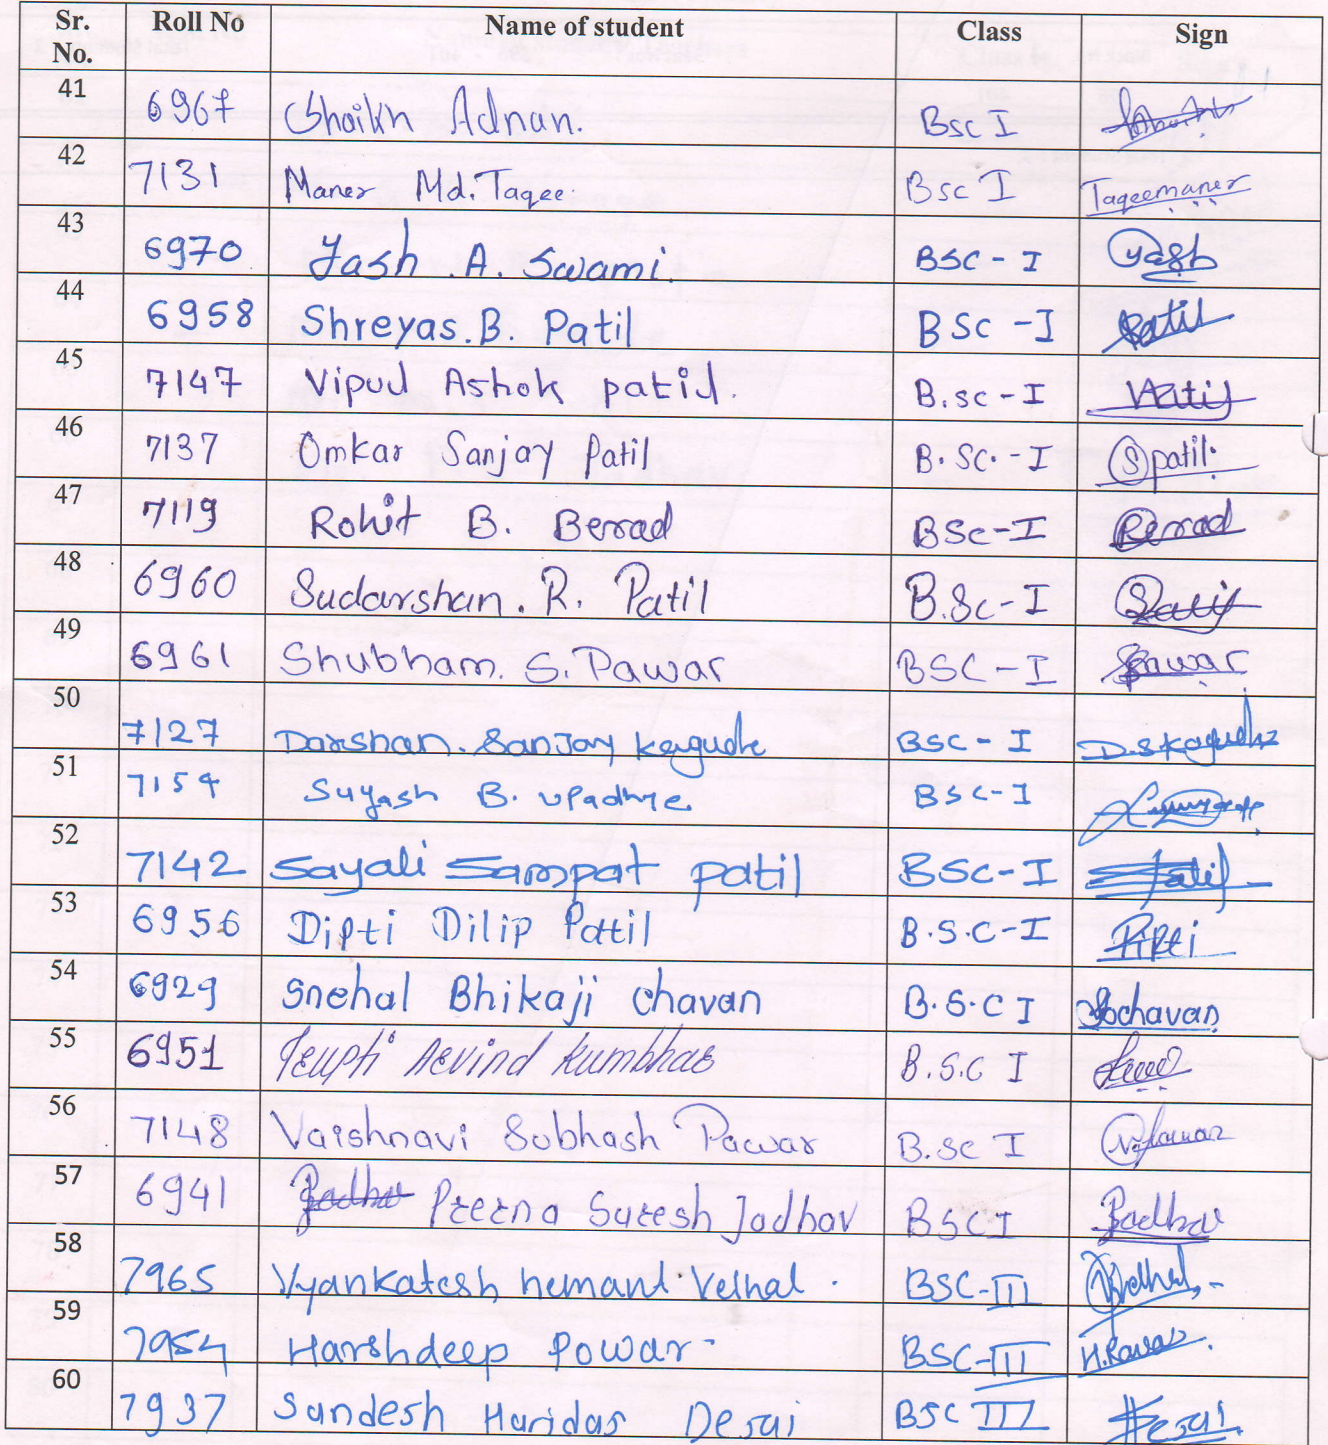 Sr. No. Roll No Name of student Class Sign
41 6967 Shaikh Adnan. BSC I
42 7131 Maner Md. Taqee. BSC I Taqeemaner
43 6970 Yash .A. Swami. BSC - I Yash
44 6958 Shreyas.B. Patil BSC - I Patil
45 7147 Vipul Ashok patil. B.sc - I Patil
46 7137 Omkar Sanjay Patil B.SC. - I S patil.
47 7119 Rohit B. Berad BSc-I Berad
48 6960 Sudarshan. R. Patil B.Sc-I
49 6961 Shubham. S. Pawar BSC - I Spawar
50 7127 Darshan. Sanjay Kagude BSC - I D.S Kagude
51 7154 Suyash B. upadhye BSC-I
52 7142 Sayali Sampat patil BSC-I Patil
53 6956 Dipti Dilip Patil B.S.C-I Dipti
54 6929 Snehal Bhikaji Chavan B.S.C I Sbchavan
55 6951 Trupti Arvind Kumbhar B.S.C I
56 7148 Vaishnavi Subhash Pawar B.SC I V.Pawar
57 6941 Prerna Suresh Jadhav BSC I Jadhav
58 7965 Vyankatesh hemant Velhal. BSC-III Velhal
59 7954 Harshdeep Powar- BSC-III H.Pawar.
60 7937 Sandesh Haridas Desai BSC III Desai